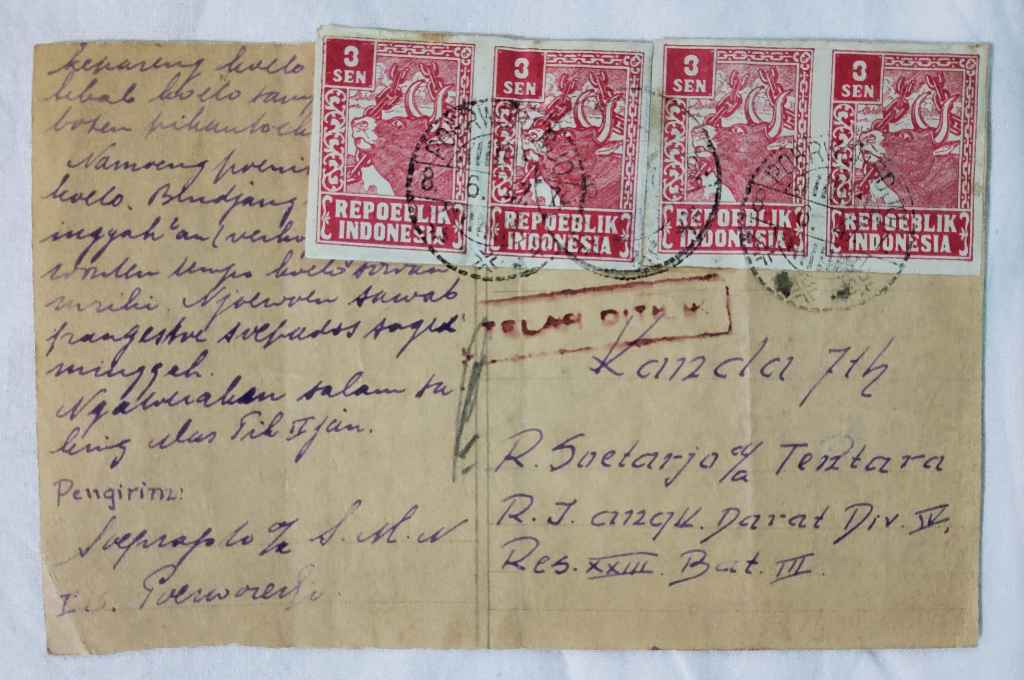 kepareng koelo
lebab koelo sang
boten pikantoek
Namoeng poeni
koelo. Bendjang
inggah²an (verho
wonten tempo koelo
mriki. Njoewoen sawab
pangestoe soepados saged
minggah.
salam
Mas
Pengirim:
Soeprapto o/a S. M. N
Poerworedjo.
3
SEN
REPOEBLIK
INDONESIA
3
SEN
REPOEBLIK
INDONESIA
3
SEN
REPOEBLIK
INDONESIA
3
SEN
REPOEBLIK
INDONESIA
TELAH
Kanda 7th
R. Soetarjo o/a Tentara
R. I. angk. Darat Div. IV.
Res. XXIII. Bat. III.